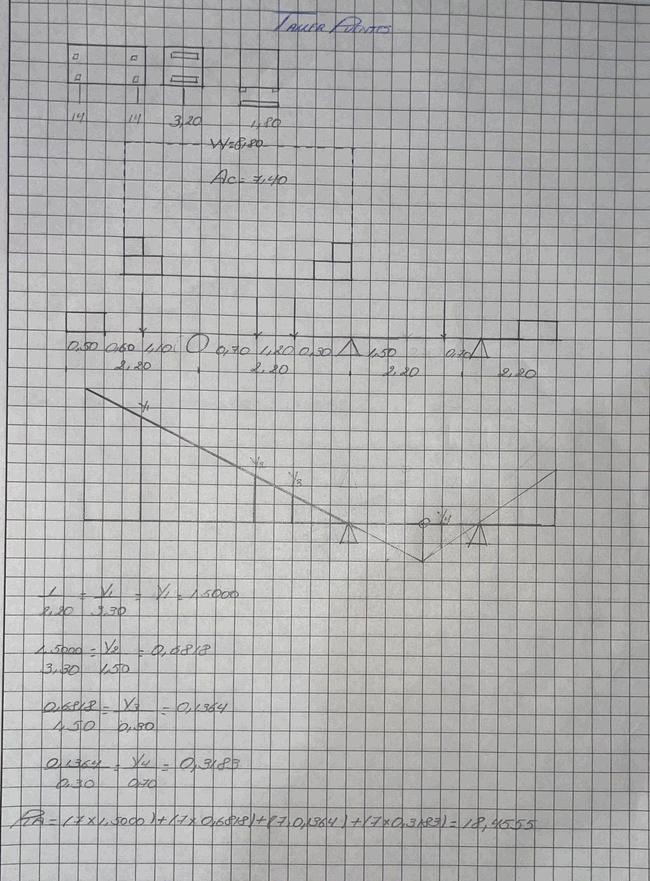 TALLER PUENTES
14 14 3,20 1,80
W=6,80
Ac=7,40
0,50 0,60 1,10 0,70 1,20 0,30 1,50 0,70
2,20 2,20 2,20 2,20
Y1
Y2
Y3
Y4
1/2,20 = Y1/3,30 = Y1 = 1,5000
1,5000/3,30 = Y2/1,50 = 0,6818
0,6818/1,50 = Y3/0,30 = 0,1364
0,1364/0,30 = Y4/0,70 = 0,3183
= (7×1,5000)+(7×0,6818)+(7,0,1364)+(7×0,3183)= 18,4555